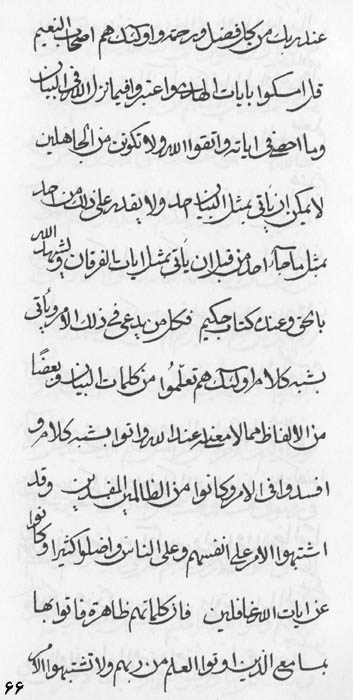 عند ربك من كل فضل ورحمة واولئك هم اصحاب النعيم
قل امسكوا بايات الهاء هوا عتبروا فيما نزل الله فى البيان
وما احصى فى اياته واتقوا الله ولا تكونن من الجاهلين
لا يمكن ان يأتى بمثل البيان احد ولا يقدر على ذلك من احد
بمثل ما جاء احد من قبل ان يأتى بمثل ايات الفرقان وليشهد الله
بالحق وعنده كتاب حكيم فكل من يدعى فى ذلك الامر ويأتى
بشبه كلام اولئك هم تعلموا من كلمات البيان وبعضا
من الالفاظ مما لا معنى له عند الله واتوا بشبه كلام و
افسدوا فى الامر وكانوا من الظالمين المفسدين وقد
اشتبهوا الامر على انفسهم وعلى الناس واضلوا كثيرا وكانوا
عن ايات الله غافلين فان كلماتهم ظاهرة فاتوا بها
بمسامع الذين اوتوا العلم من ربهم ولا تشتبهوا الامر
۶۶